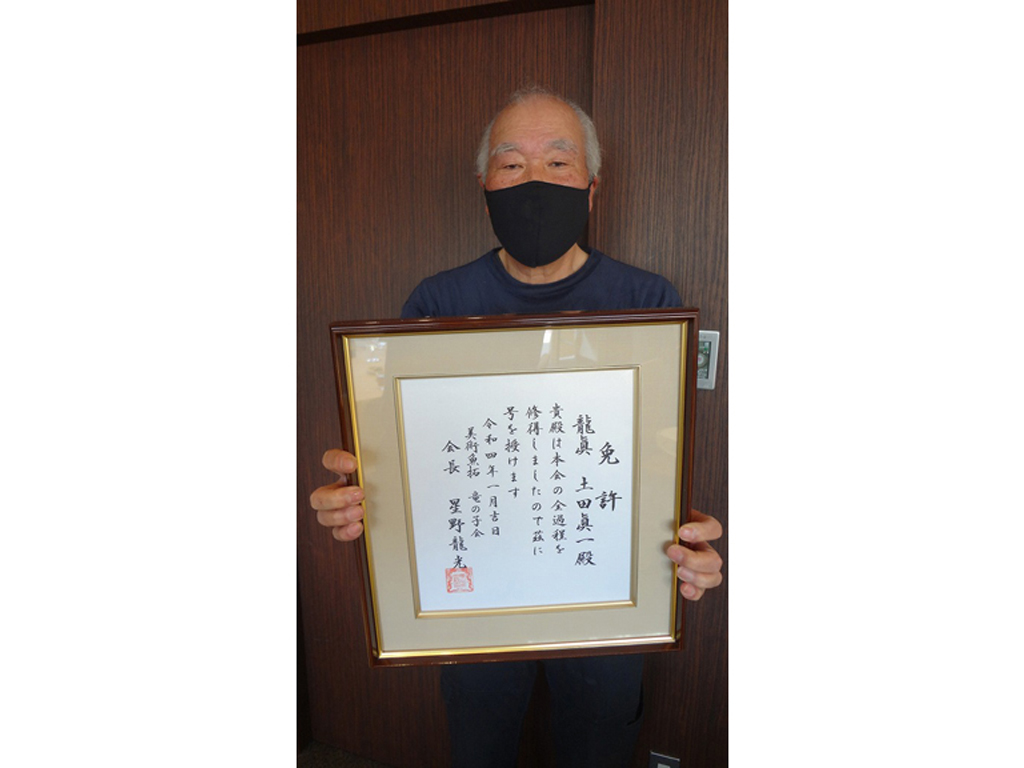 免許
龍眞 土田眞一殿
貴殿は本会の全過程を
修得しましたので茲に
号を授けます
令和四年一月吉日
美術魚拓 竜の子会
会長 星野龍光